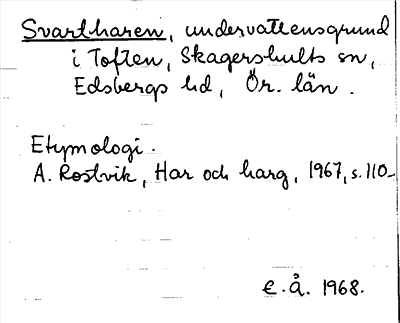 Svartharen, undervattensgrund
i Toften, Skagershults sn,
Edsbergs hd, Ör. län.
Etymologi.
A. Rostvik, Har och harg, 1967, s. 110-
E. Å. 1968.